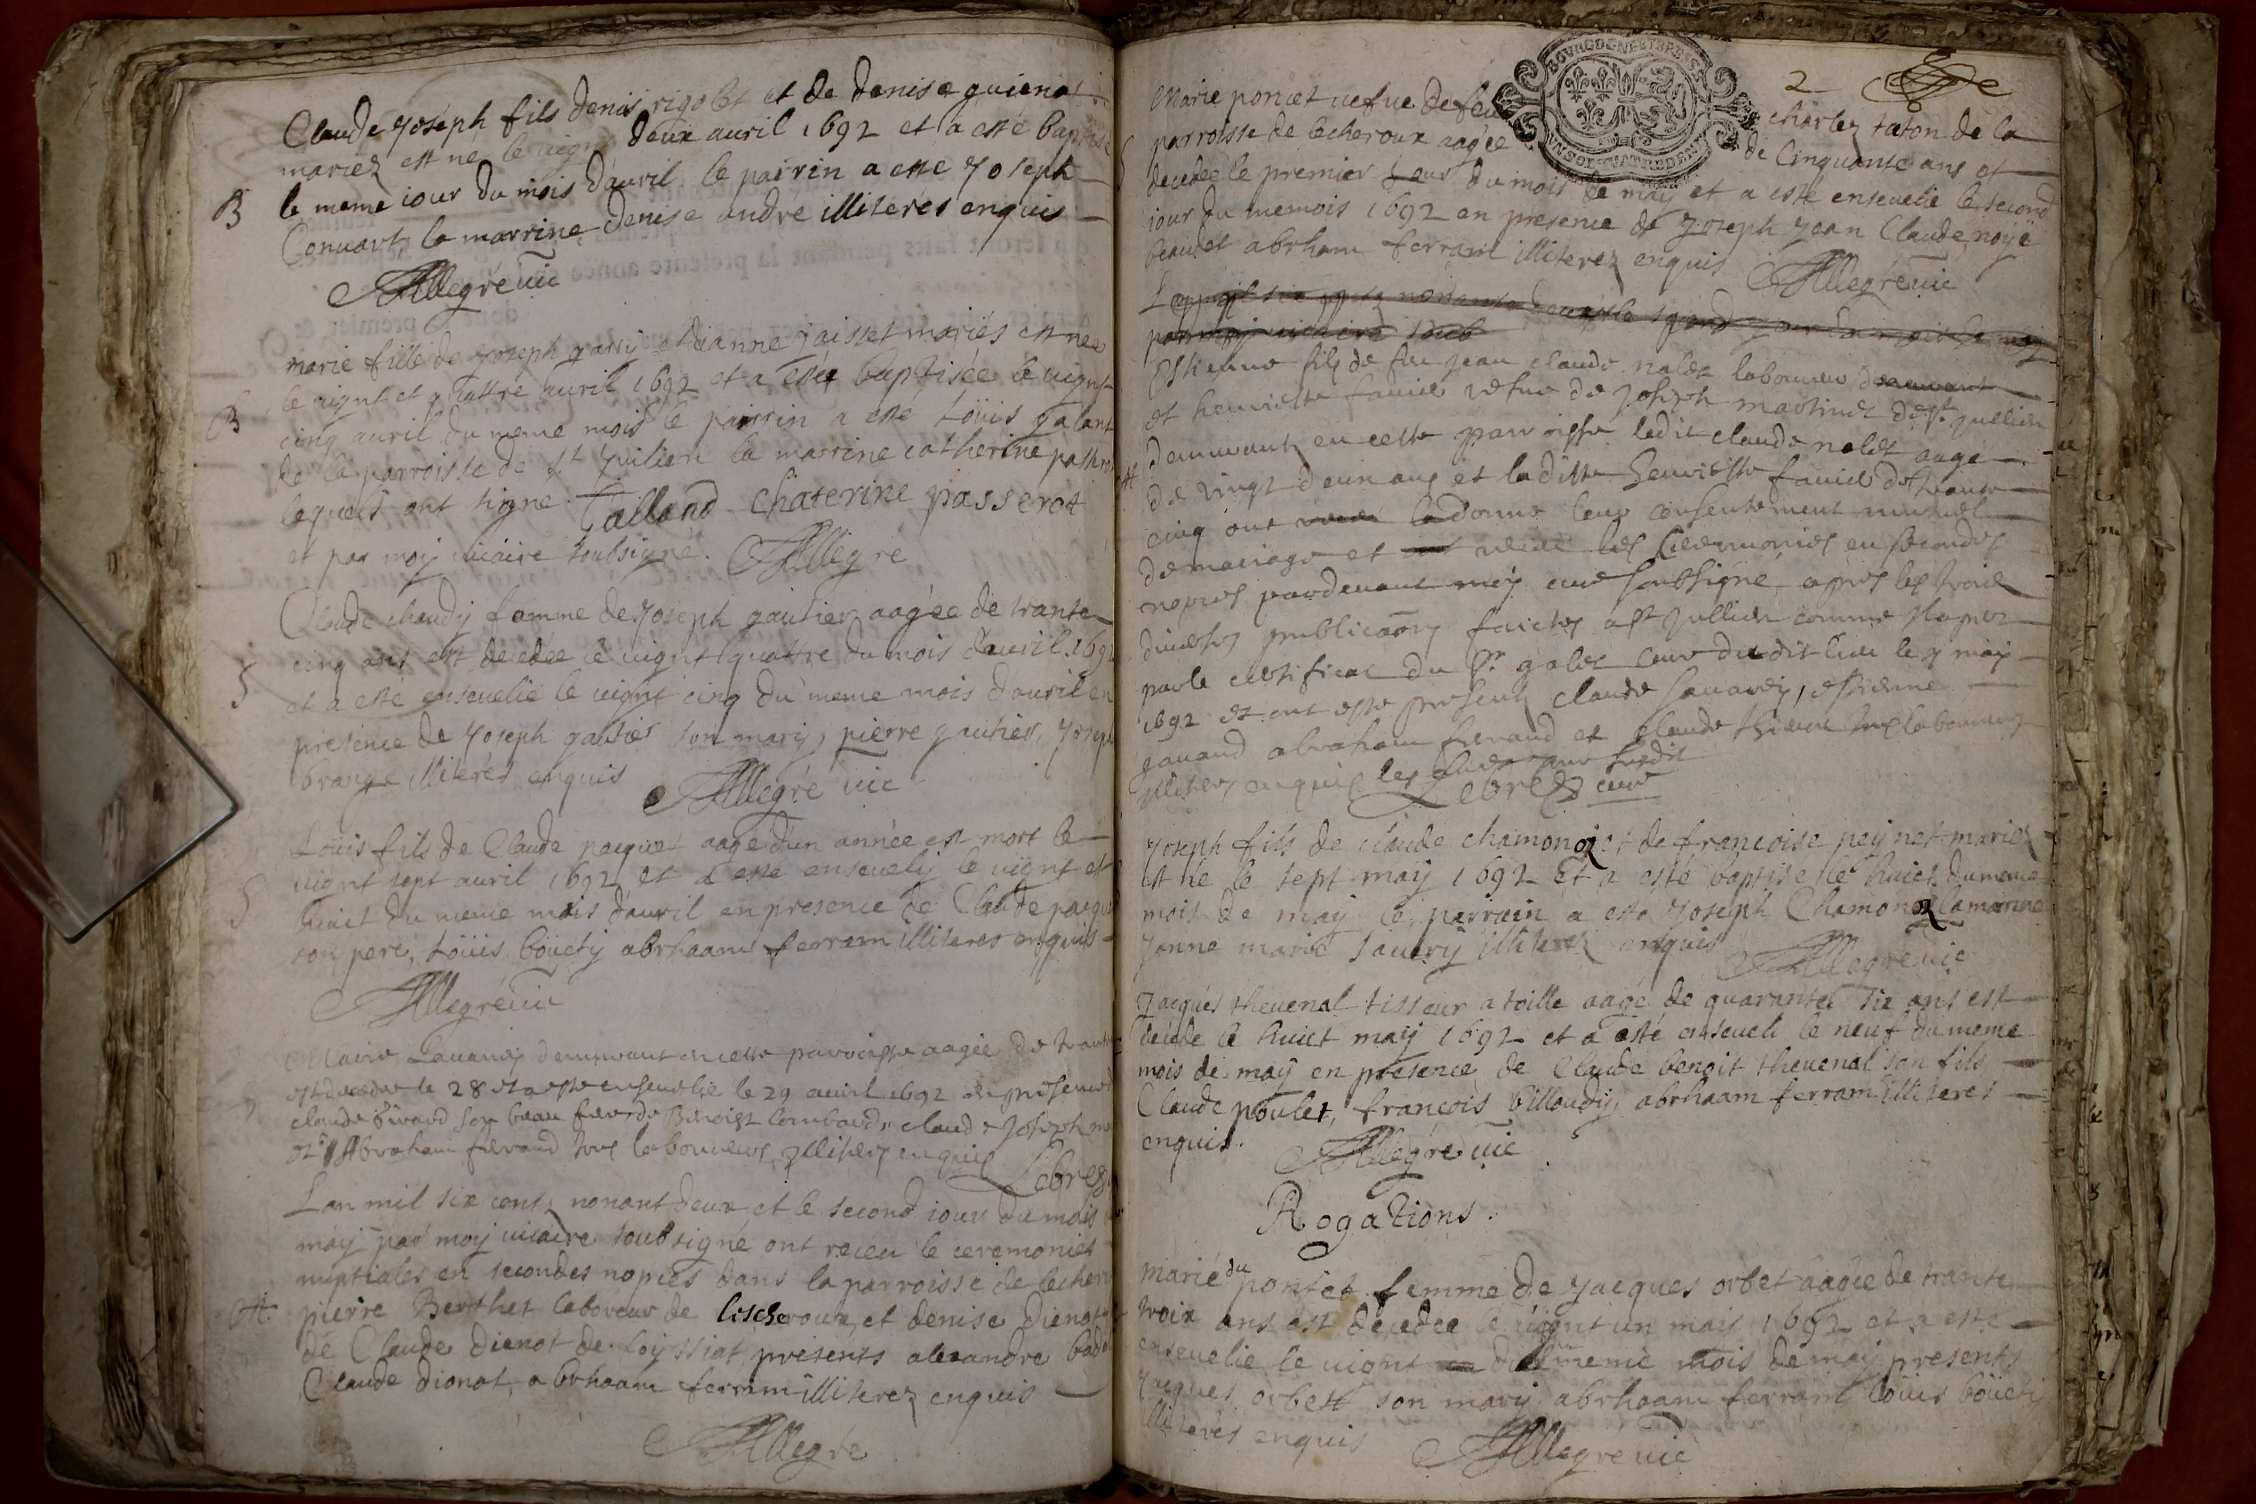 Claude Joseph fils denis rigolet et de denise guienot
mariez est né le vignt deux auril 1692 et a esté baptise
B
le meme iour du mois dauril le pairin a esté Joseph
Conuart, la marrine denise andré illiteres enquis
Allegré vic
marie fille de Joseph parry et dianne jaisset mariés est née
le vignt et quattre auril 1692 et a estée baptisée le vignt
B
cinq auril du meme mois le pairrin a esté Loüis galant
de la parroisse de st Julien la marrine catherine passerot
lequels ont signe Galland Chaterine passerot
et par moy vicaire soubsigné. Allegré
Claude chaudy femme de Joseph gautier aagée de trante
cinq ans est decedée le vignt quatre du mois dauril 1692
S
et a esté enseuelie le vignt cinq du meme mois dauril en
presence de Joseph gautier son mary, pierre gautier, Joseph
brange illiterés enquis Allegré vic
Loüis fils de Claude pacquet aagé d'un année est mort le
vignt sept auril 1692 et a esté enseuely le vignt et
S
huict du meme mois dauril en presence de Claude pacquet
son pere, Loüis boüety abrhaam ferram illiteres enquis
Allegré vic
demeurant en cette parroisse aagée de
est decedee le 28 et a este enseuelie le 29 auril 1692 en presence de
claude son beau frere de Benoist Lombard, claude Joseph
et Abraham ferrand tous laboureurs illiteres enquis
Lebre
Lan mil six cent nonant deux et le second iour du mois
may par moy vicaire soubsigné ont receu le ceremonies
nuptiales en secondes nopces dans la parroisse de lecheroux
M
pierre Berthet laboreur de lescheroux et denise Dienot
de Claude Dienot de Loyssiat presents alexandre
Claude dionot, abrhaam ferram illiterez enquis
Allegré
2
Marie poncet uefue de feu charlez taton de la
parroisse de lecheroux aagée de Cinquante ans et
S
decedée le premier iour du mois de may et a esté enseuelie le second
iour du memois 1692 en presence de Joseph Jean Claude noyé
beau et abrham ferram illiterez enquis Allegré vic
Estienne fils de feu Jean claude nalet laboureur
et henriette fauier uefue de Joseph martinet de st Jullien
demeurants en cette parroisse ledit claude nalet aage
M
de vingt deux ans et laditte henriette fauier de trante
cinq ont donné leur consentement mutuel
de mariage et receu les Ceremonies en secondes
nopces pardeuant moy cure soubsigné apres les trois
publicaons faictes a st Jullien comme
par le certificat du Sr galet cure du dit lieu le 7 may
1692 et ont esté presents claude Sauarey, estienne
gauand abraham ferrand et claude tous laboureurs
illiteres enquis Lebre cure
Joseph fils de claude chamonoz et de francoise peynet mariez
est né le sept may 1692 et a esté baptise le huict du meme
mois de may le parrain a este Joseph Chamonoz la marine
Janne marie Sauery illiterez enquis
Allegré vic
Jacques theuenal tisseur a toille aagé de quarante six ans est
decede le huict may 1692 et a esté enseueli le neuf du meme
mois de may en presence de Claude benoit theuenal son fils
Claude poulet, francois billoudy, abrhaam ferram illiteres
enquis. Allegré vic
Rogations.
marie du pontet femme de Jacques orbet aagée de trante
troix ans est decedée le vignt un may 1692 et a este
enseuelie le vignt du meme mois de may presents
Jacques orbet son mary abrhaam ferram Loüis boüety
illiterés enquis Allegré vic